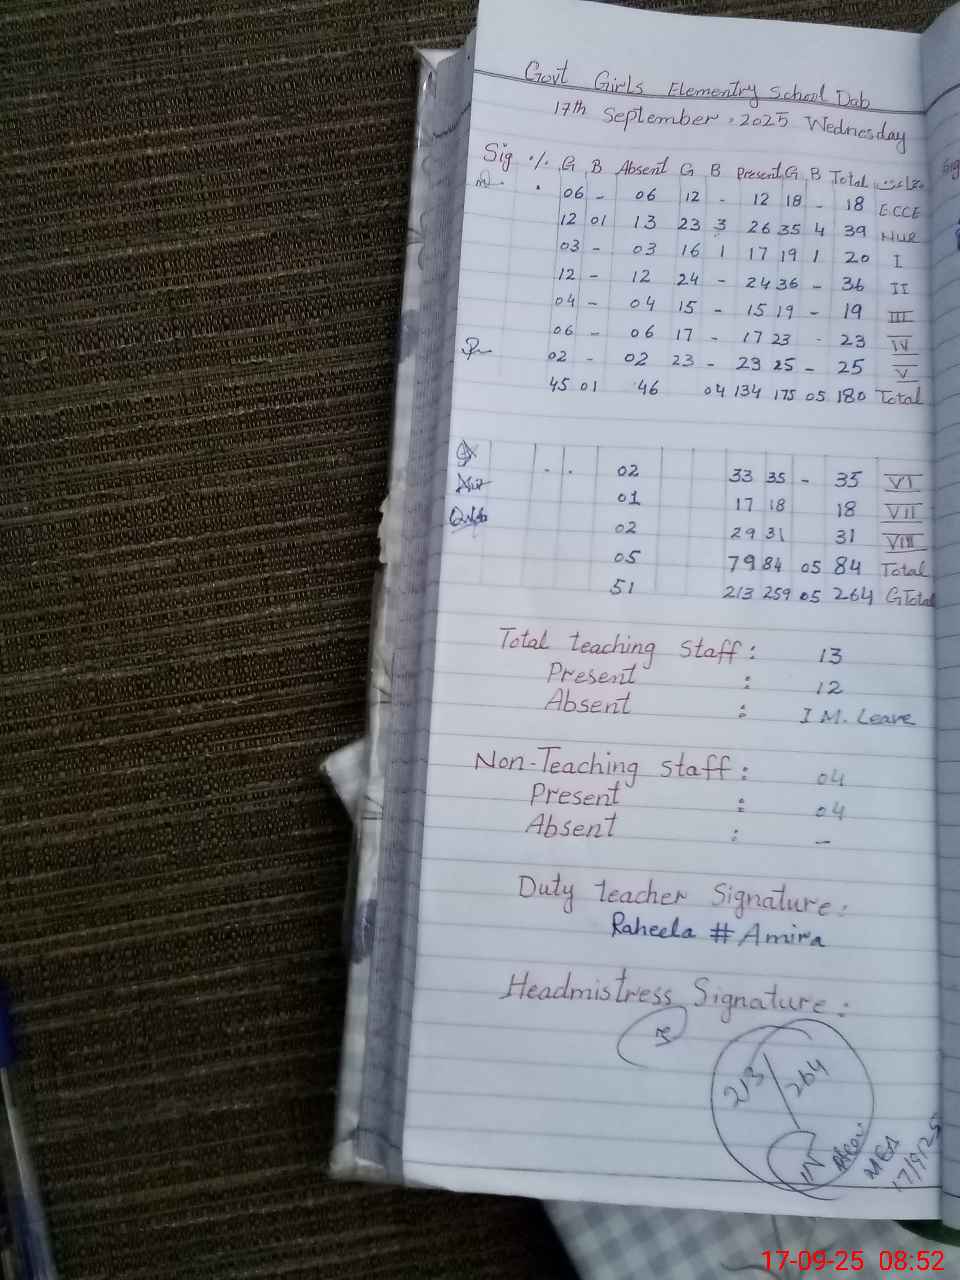 Govt Girls Elementry School Dab
17th September, 2025 Wednesday
Sig % G B Absent G B Present G B Total
06 - 06 12 - 12 18 - 18 ECCE
12 01 13 23 3 26 35 4 39 Nur
03 - 03 16 1 17 19 1 20 I
12 - 12 24 - 24 36 - 36 II
04 - 04 15 - 15 19 - 19 III
06 - 06 17 - 17 23 - 23 IV
02 - 02 23 - 23 25 - 25 V
45 01 46 04 134 175 05 180 Total
02 33 35 - 35 VI
01 17 18 18 VII
02 29 31 31 VIII
05 79 84 05 84 Total
51 213 259 05 264 GTotal
Total teaching Staff : 13
Present : 12
Absent : I M. Leave
Non-Teaching staff : 04
Present : 04
Absent : -
Duty teacher Signature :
Raheela # Amira
Headmistress Signature :
213 / 264
MEA
17/9/25
17-09-25 08:52